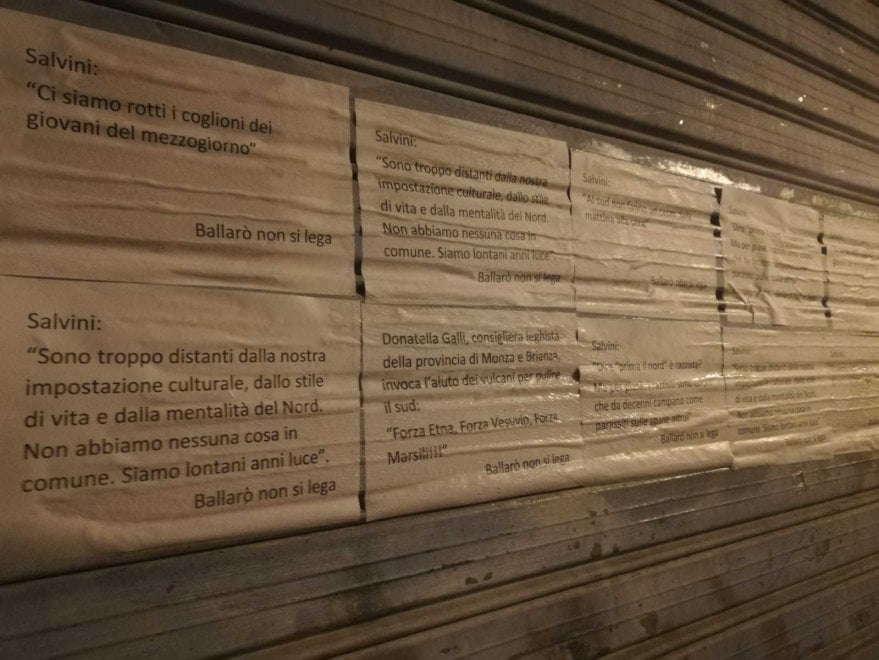 Salvini:
"Ci siamo rotti i coglioni dei
giovani del mezzogiorno"
Ballarò non si lega
Salvini:
"Sono troppo distanti dalla nostra
impostazione culturale, dallo stile
di vita e dalla mentalità del Nord.
Non abbiamo nessuna cosa in
comune. Siamo lontani anni luce"
Ballarò non si lega
Salvini:
"Al sud non
mattina alle
Ballarò non si lega
Salvini:
"Dire "prima
Ma per piacere
che da
Salvini:
"Sono troppo distanti dalla nostra
impostazione culturale, dallo stile
di vita e dalla mentalità del Nord.
Non abbiamo nessuna cosa in
comune. Siamo lontani anni luce".
Ballarò non si lega
Donatella Galli, consigliera leghista
della provincia di Monza e Brianza,
invoca l'aiuto dei vulcani per pulire
il sud:
"Forza Etna, Forza Vesuvio, Forza
Marsili!!!"
Ballarò non si lega
Salvini:
"Dire "prima il nord" è razzista?
Ma per piacere, razzisti sono
che da decenni campano come
parassiti sulle spalle altrui"
Ballarò non si lega
Salvini:
"Sono troppo distanti dalla nostra
impostazione culturale, dallo stile
di vita e dalla mentalità del Nord.
Non abbiamo nessuna cosa in
comune. Siamo lontani anni luce"
Ballarò non si lega
Salvini: